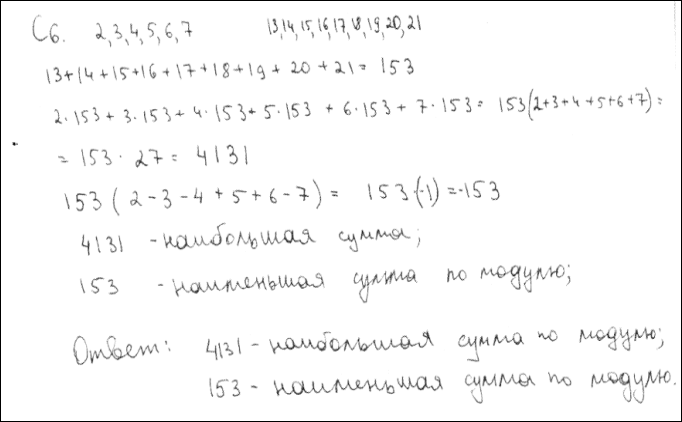 С6. 2,3,4,5,6,7 13,14,15,16,17,18,19,20,21
13+14+15+16+17+18+19+20+21=153
2·153+3·153+4·153+5·153+6·153+7·153= 153(2+3+4+5+6+7)=
=153·27=4131
153(2-3-4+5+6-7)= 153(-1)=-153
4131 -наибольшая сумма;
153 -наименьшая сумма по модулю;
Ответ: 4131-наибольшая сумма по модулю;
153-наименьшая сумма по модулю.